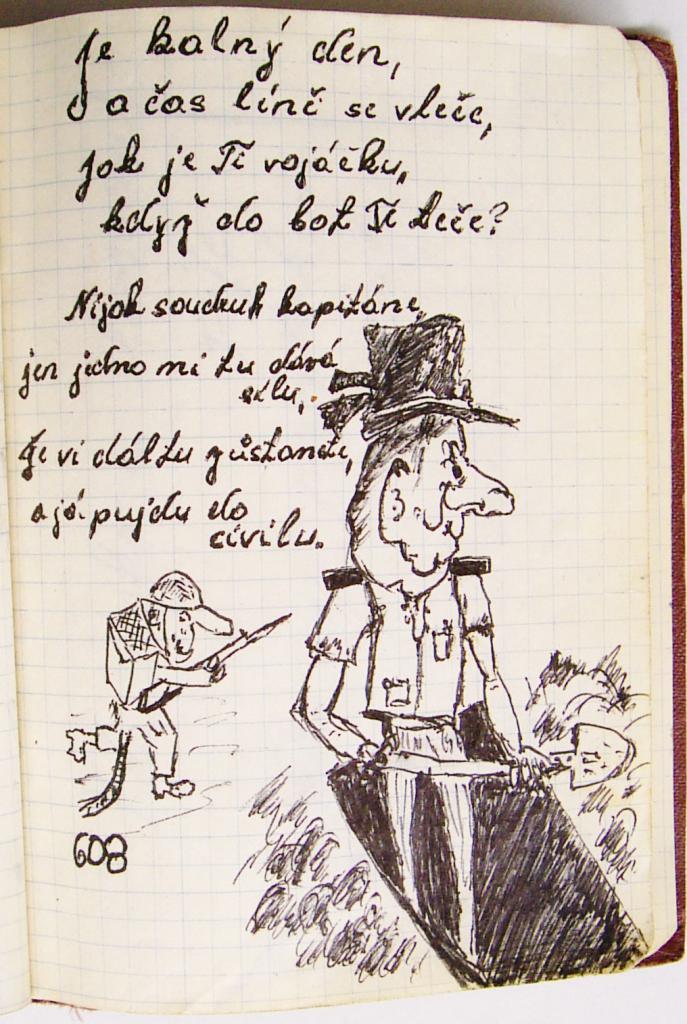 Je kalný den,
a čas líně se vleče,
jak je Ti vojáčku,
když do bot Ti teče?
Nijak soudruh kapitáne,
jen jedno mi tu dává
sílu,
že vi dál tu zůstanete,
a já pujdu do
civilu.
608